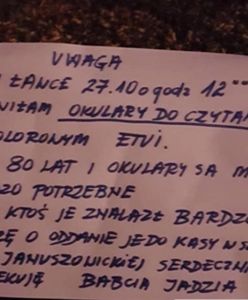 UWAGA
ŁANCE 27.10 o godz 12⁰⁰
NIŁAM OKULARY DO CZYTAN
OLORONYM ETUI.
80 LAT I OKULARY SĄ M
ZO POTRZEBNE
KTOŚ JE ZNALAZŁ BARDZO
ZĘ O ODDANIE JE DO KASY W S
JANUSZOWICKIEJ SERDECZN
EKUJĘ BABCIA JADZIA